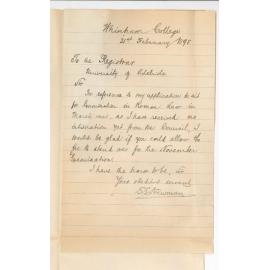 Whinham College
21st February 1898
To the Registrar
University of Adelaide
Sir
In reference to my application to sit
for Examination in Roman Law in
March next, as I have received no
intimation yet from the Council, I
would be glad if you could allow the
fee to stand over for the November
Examination.
I have the honor to be, Sir
Your obedient servant
Newman